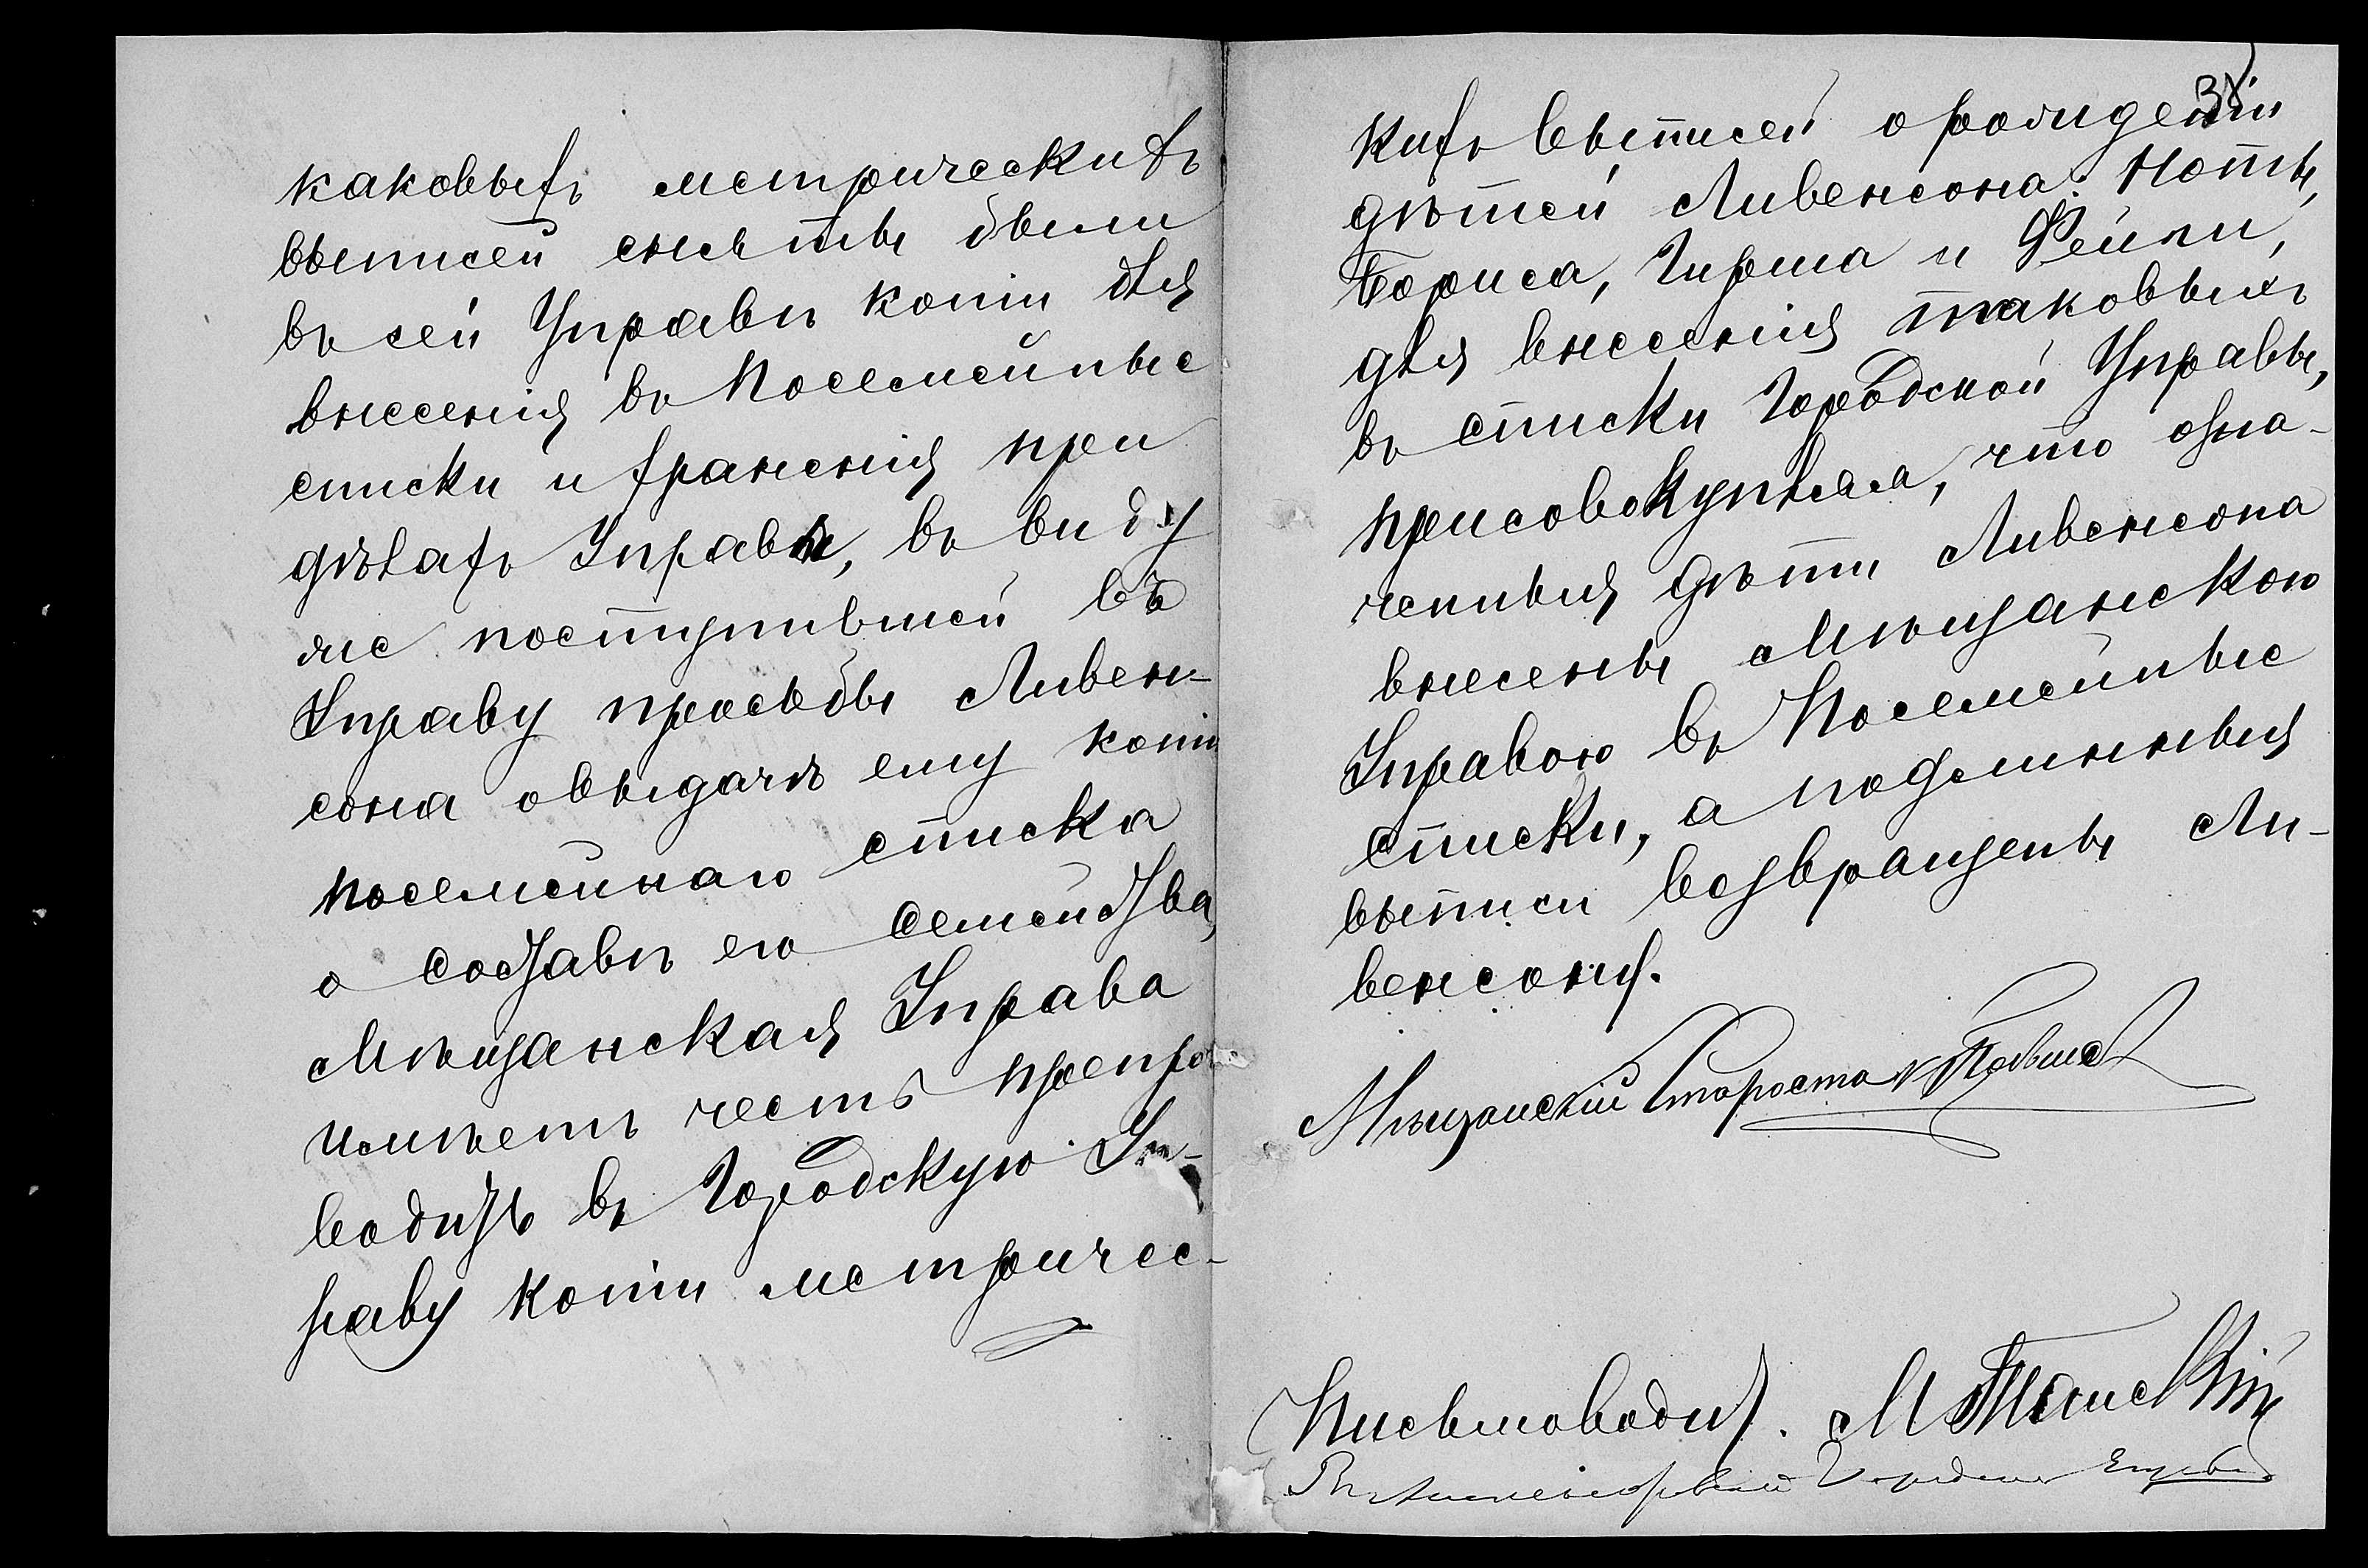 каковыхъ метрическихъ
выписей сняты были
въ сей Управѣ копіи для
внесенія въ Посемейные
списки и храненія при
дѣлахъ Управы, въ виду
же поступившей въ
Управу просьбы Ливен-
сона о выдачѣ ему копіи
посемейнаго списка
о составѣ его семейства,
Мѣщанская Управа
имѣетъ честь препро
водить въ Городскую Уп-
раву копіи метричес-
кихъ выписей о рожденіи
дѣтей Ливенсона: Ноты,
Бориса, Гирша и Фейги,
для внесенія таковыхъ
въ списки Городской Управы,
присовокупляя, что озна-
ченныя дѣти Ливенсона
внесены Мѣщанскою
Управою въ Посемейные
списки, а подлинныя
выписи возвращены Ли-
венсону.
Мѣщанскій Староста
Письмоводит. М